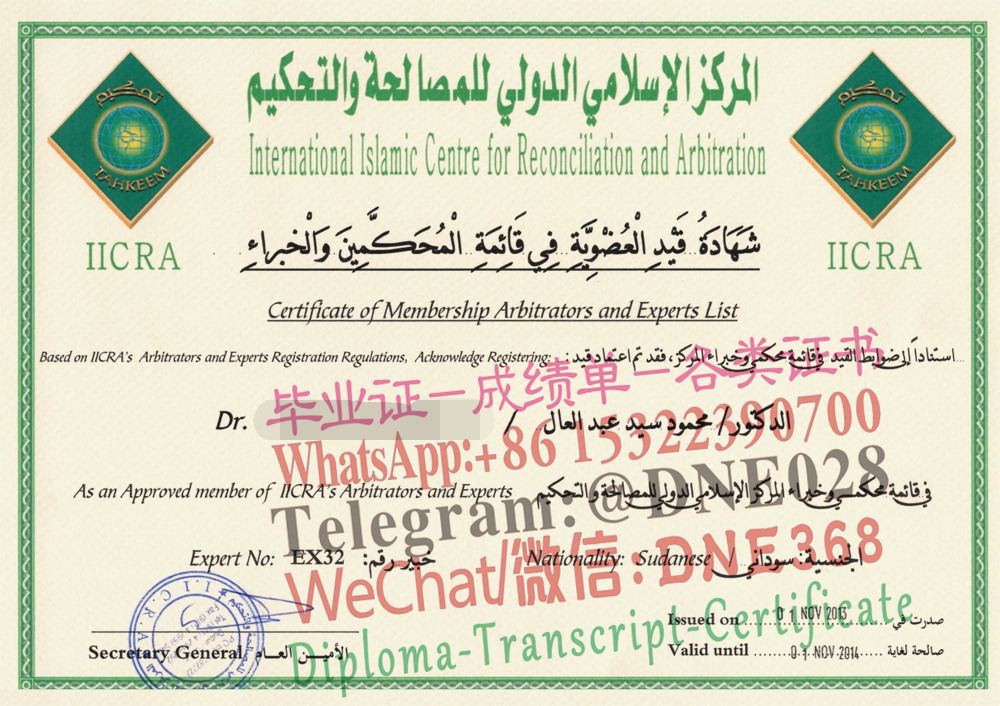 المركز الإسلامي الدولي للمصالحة والتحكيم
International Islamic Centre for Reconciliation and Arbitration
تحكيم
TAHKEEM
IICRA
تحكيم
TAHKEEM
IICRA
شَهَادَةُ قَيْدِ الْعُضْوِيَّةِ فِي قَائِمَةِ الْمُحَكَّمِينَ وَالْخبراءِ
Certificate of Membership Arbitrators and Experts List
Based on IICRA's Arbitrators and Experts Registration Regulations, Acknowledge Registering: استناداً إلى ضوابط القيد في قائمة محكمي وخبراء المركز، فقد تم اعتماد قيد:
毕业证—成绩单—各类证书
Dr. / الدكتور/ محمود سيد عبد العال
WhatsApp:+86 15322390700
As an Approved member of IICRA's Arbitrators and Experts في قائمة محكمي وخبراء المركز الإسلامي الدولي للمصالحة والتحكيم
Telegram:@DNE028
Expert No: EX32 خبير رقم: Nationality: Sudanese / الجنسية: سوداني
WeChat/微信:DNE368
Diploma-Transcript-Certificate
Issued on 01 NOV 2013 صدرت في
Secretary General / الأمين العام
Valid until 01 NOV 2014 صالحة لغاية
I.I.C.R.A